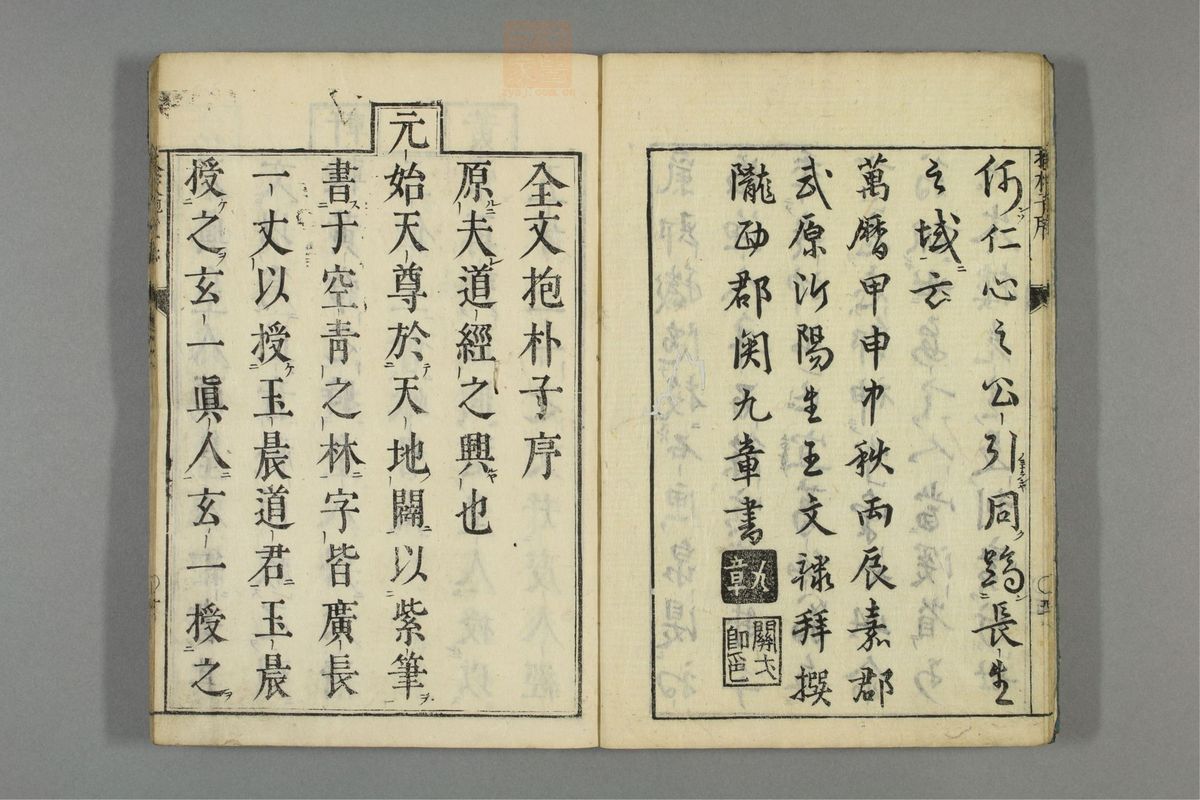 抱朴子序
仰仁心之公引同躋長生
之域云
萬曆甲申中秋兩辰嘉郡
武原沂陽生王文祿拜撰
隴西郡関九章書
九章
全文抱朴子序
原夫道經之興也
元始天尊於天地闢以紫筆
書于空青之林字皆廣長
一丈以授玉晨道君玉晨
授之玄一眞人玄一授之
zysj.com.cn